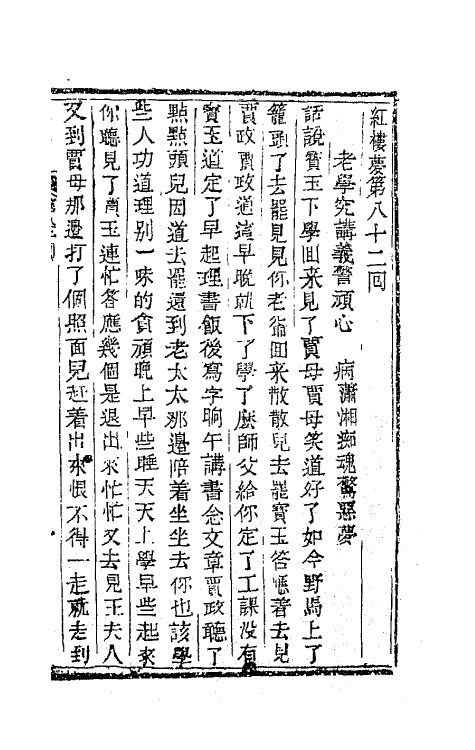 紅樓夢第八十二回
老學究講義警頑心　病瀟湘痴魂驚惡夢
話說寶玉下學回来見了賈母賈母笑道好了如今野馬上了
籠頭了去罷見見你老爺回来散散兒去罷寶玉答應着去見
賈政賈政道這早晚就下了學了麽師父給你定了工課沒有
寳玉道定了早起理書飯後寫字晌午講書念文章賈政聽了
點點頭兒因道去罷還到老太太那邉陪着坐坐去你也該學
些人功道理別一味的貪頑晚上早些睡天天上學早些起來
你聽見了寳玉連忙答應幾個是退出來忙忙又去見王夫人
又到賈母那邉打了個照面兒赶着出來恨不得一走就走到